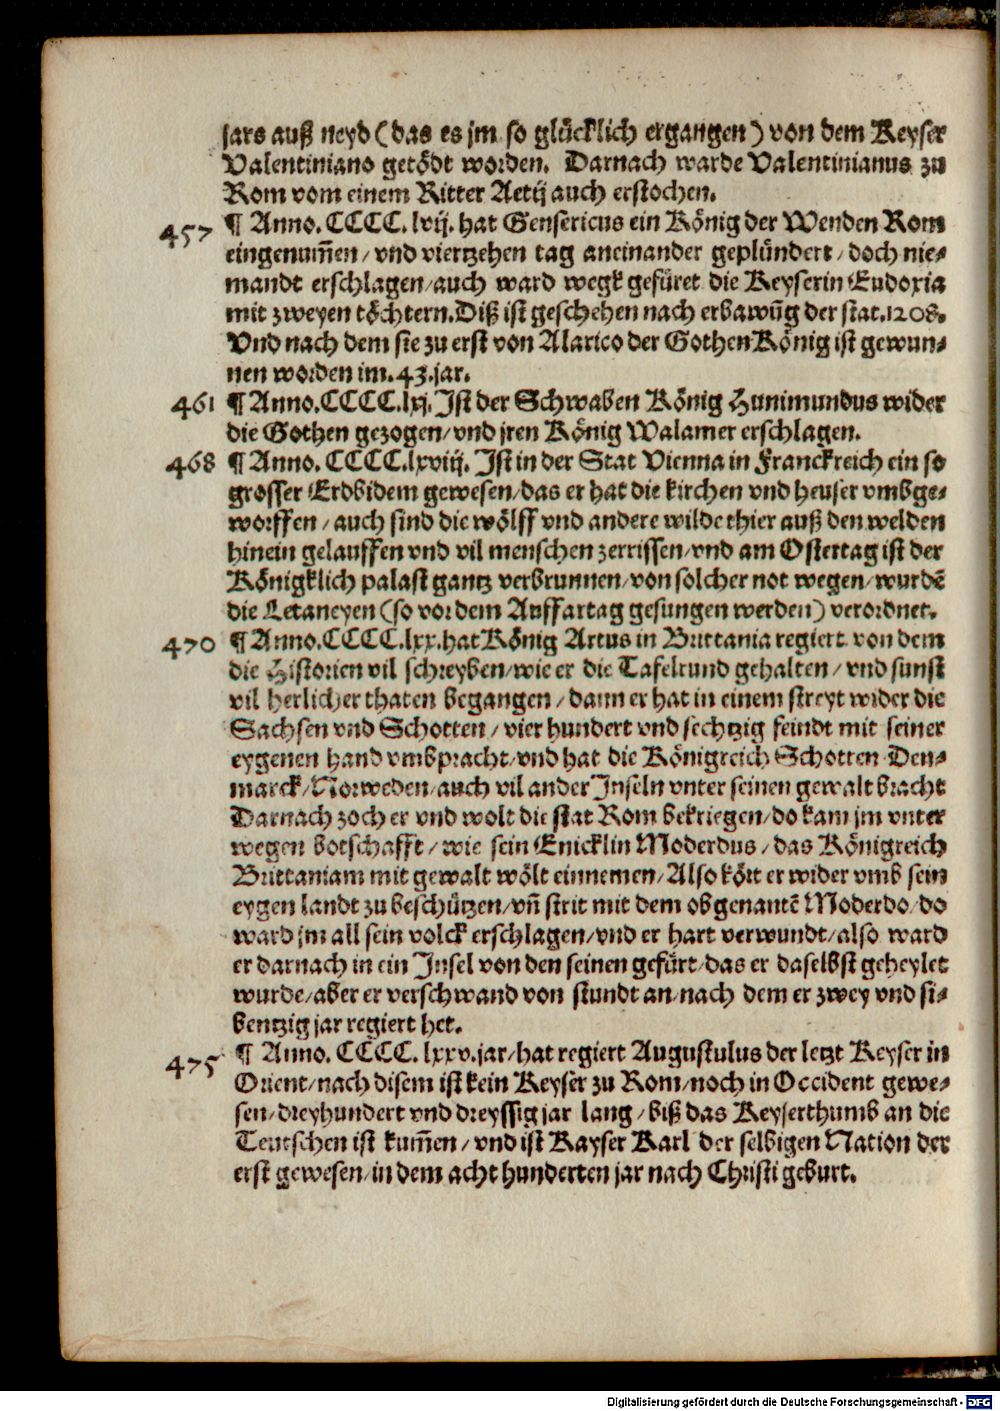 jars auß neyd (das es jm so glücklich ergangen) von dem Keyser
Valentiniano getödt worden. Darnach warde Valentinianus zu
Rom vom einem Ritter Aetij auch erstochen.
457 ¶ Anno. CCCC. lvij. hat Gensericus ein König der Wenden Rom
eingenum̃en / vnd viertzehen tag aneinander geplündert / doch nie⸗
mandt erschlagen / auch ward wegk gefüret die Keyserin Eudoxia
mit zweyen töchtern. Diß ist geschehen nach erbawũg der stat. 1208.
Vnd nach dem sie zu erst von Alarico der Gothen König ist gewun⸗
nen worden im. 43. jar.
461 ¶ Anno. CCCC. lxj. Ist der Schwaben König Hunimundus wider
die Gothen gezogen / vnd jren König Walamer erschlagen.
468 ¶ Anno. CCCC. lxviij. Ist in der Stat Vienna in Franckreich ein so
grosser Erdbidem gewesen / das er hat die kirchen vnd heuser vmbge⸗
worffen / auch sind die wölff vnd andere wilde thier auß den welden
hinein gelauffen vnd vil menschen zerrissen / vnd am Ostertag ist der
Königklich palast gantz verbrunnen / von solcher not wegen / wurdẽ
die Letaneyen (so vor dem Auffartag gesungen werden) verordnet.
470 ¶ Anno. CCCC. lxx. hat König Artus in Brittania regiert von dem
die Historien vil schreyben / wie er die Tafelrund gehalten / vnd sunst
vil herlicher thaten begangen / dann er hat in einem streyt wider die
Sachsen vnd Schotten / vier hundert vnd sechtzig feindt mit seiner
eygenen hand vmbpracht / vnd hat die Königreich Schotten Den⸗
marck / Norweden / auch vil ander Inseln vnter seinen gewalt bracht
Darnach zoch er vnd wolt die stat Rom bekriegen / do kam jm vnter
wegen botschafft / wie sein Enicklin Moderdus / das Königreich
Brittaniam mit gewalt wölt einnemen / Also kört er wider vmb sein
eygen landt zu beschützen / vñ strit mit dem obgenantẽ Moderdo / do
ward jm all sein volck erschlagen / vnd er hart verwundt / also ward
er darnach in ein Insel von den seinen gefürt / das er daselbst geheylet
wurde / aber er verschwand von stundt an / nach dem er zwey vnd si⸗
bentzig jar regiert het.
475 ¶ Anno. CCCC. lxxv. jar / hat regiert Augustulus der letzt Keyser in
Orient / nach disem ist kein Keyser zu Rom / noch in Occident gewe⸗
sen / dreyhundert vnd dreyssig jar lang / biß das Keyserthumb an die
Teutschen ist kum̃en / vnd ist Kayser Karl der selbigen Nation der
erst gewesen / in dem acht hunderten jar nach Christi geburt.
Digitalisierung gefördert durch die Deutsche Forschungsgemeinschaft - DFG